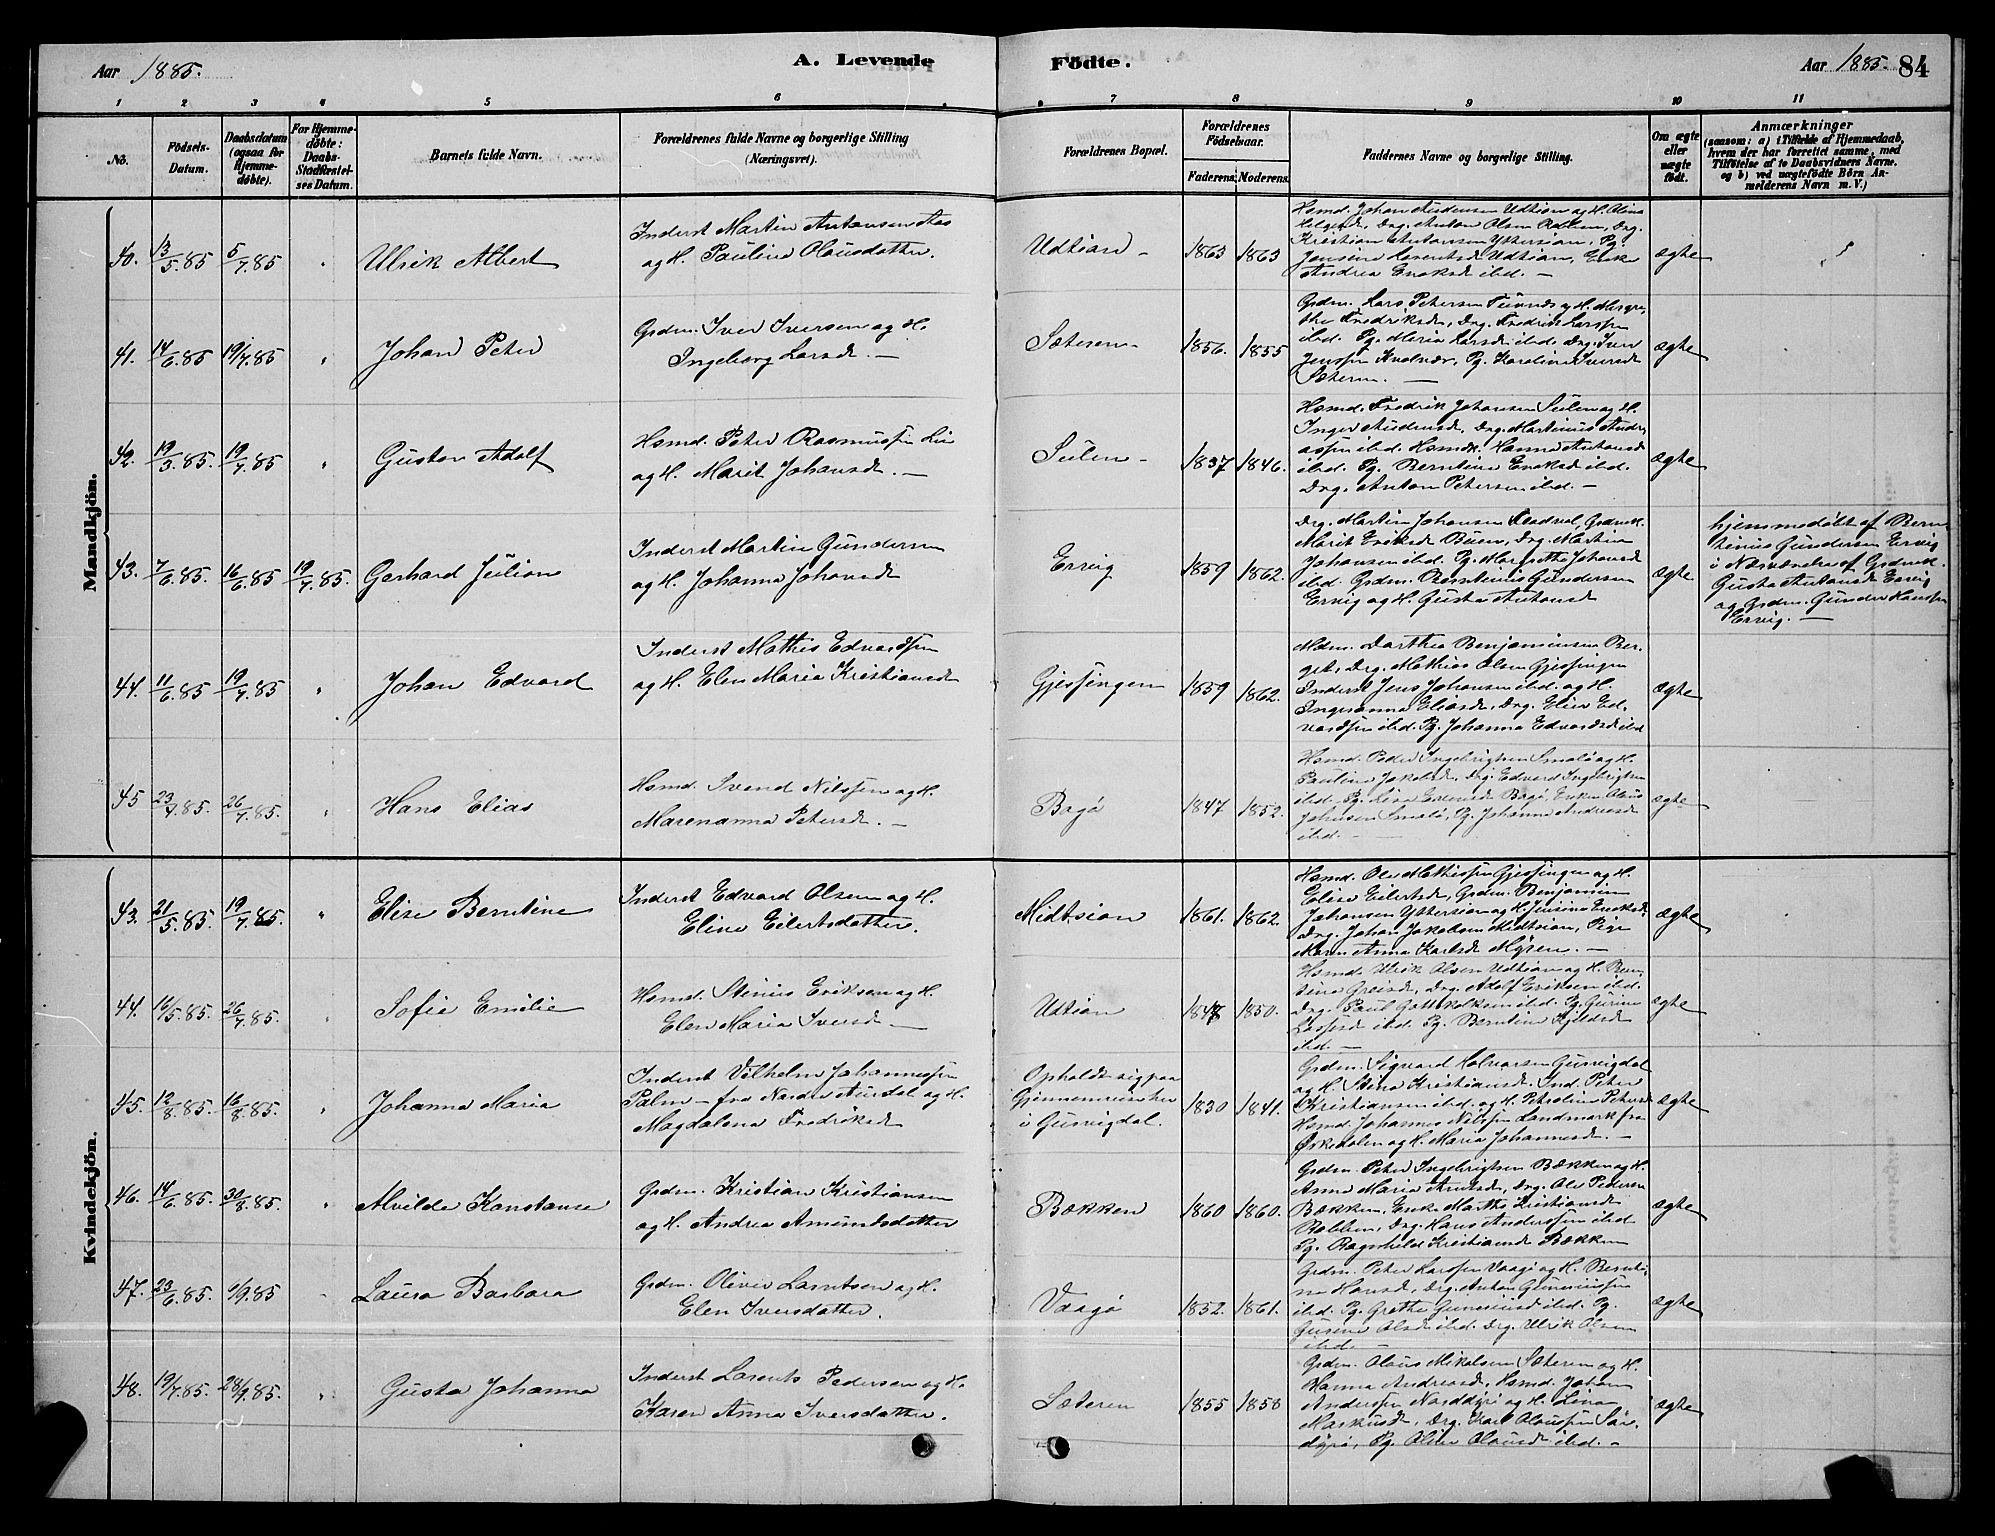 Aar 1885. A. Levende Födte. Aar 1885. 84
1 2 3 4 5 6 7 8 9 10 11
No.
Födsels-Datum.
Daabsdatum (ogsaa for Hjemmedøbte).
For Hjemmedøbte: Daabs-Stadfæstelses Datum.
Barnets fulde Navn.
Forældrenes fulde Navne og borgerlige Stilling (Næringsvei).
Forældrenes Bopæl.
Forældrenes Födselsaar.
Faderens. Moderens.
Faddernes Navne og borgerlige Stilling.
Om ægte eller uægte födt.
Anmærkninger
(saasom: a) i Tilfælde af Hjemmedaab,
hvem der har forrettet samme, med
Tilföielse af to Daabsvidners Navne.
og b) ved uægtefödte Börn An-
melderens Navn m. V.)
Mandkjön.
40. 13/5.85 5/7.85 " Ulrik Albert
Inderst Martin Antonsen Aas
og H. Pauline Olausdatter.
Udtian – 1863 1863
Hsmd. Johan Audensen Udtian og H. Olina
Helgesd., Drg. Anton Olsen
Kristian Antonsen Yttersian, Pg.
Jensine Larentsd. Udtian, Enke
Andrea Enoksd. ibd. –
ægte
41. 14/6.85 19/7.85 " Johan Peter
Grdm. Iver Iversen og H.
Ingeborg Larsd. –
Sæteren – 1856. 1855
Grdm. Lars Petersen og H. Margre-
the Fredriksd., Drg. Fredrik Larssen
ibd. Pg. Maria Larsd. ibd. Drg. Iver
Jenssen Kvalvær, Pg. Karoline Iversd.
Sæteren. –
ægte
42. 19/3.85. 19/7.85 " Gustav Adolf
Hsmd. Peter Rasmussen Lie
og H. Marit Johansd. –
Sulen – 1837 1846.
Hsmd. Fredrik Johansen Sulen og H.
Inger Audensd., Drg. Martinus Andre-
assen ibd. Hsmdk. Hanna Antonsd.
ibd. Pg. Berntine Enoksd. ibd.
Drg. Anton Petersen ibd. –
ægte
43. 7/6.85. 16/6.85 19/7.85. Gerhard Julian
Inderst Martin Gundersen
og H. Johanna Johansd.
Ervig 1859 1862.
Drg. Martin Johansen Grdmk.
Marit Eriksd. Buen, Drg. Martin
Johansen ibd. Pg. Margrethe Johansd.
ibd. Grdm. Berntinus Gundersen
Ervig og H. Gusta Antonsd.
ægte
hjemmedøbt af Bern-
tinus Gundersen Ervig
i Nærværelse af Grdmk.
Gusta Antonsd. Ervig
og Grdm. Gunder Hanssen
Ervig. –
44. 11/6.85 19/7.85 " Johan Edvard
Inderst Mathis Edvardsen
og H. Elen Maria Kristiansd.
Gjessingen 1859 1862.
Mdm. Dorthea Benjaminsen Ber-
get, Drg. Mathias Olsen Gjessingen
Inderst Jens Johansen ibd. og H.
Ingeranna Eliasd., Drg. Elier Ed-
vardsen ibd. Pg. Johanna Edvardsd. ibd
ægte
45 23/4.85. 26/7.85. " Hans Elias
Hsmd. Svend Nilssen og H.
Marenanna Petersd. –
Bogø 1847 1852.
Hsmd. Peder Ingebrigtsen Smalø og H.
Pauline Jakobsd., Drg. Edvard Ingebrigtsen
ibd. Pg. Lina Bogø, Enkem. Olaus
Johnsen Smalø, Pg. Johanna Andreasd.
ibd. –
ægte
Kvindekjön.
43. 21/5.85. 19/7.85. " Elise Berntine
Inderst Edvard Olsen og H.
Eline Eilertsdatter.
Midtsian 1861. 1862.
Hsmd. Ole Mathissen Gjessingen og H.
Elise Eilertsd., Grdm. Benjamin
Johansen Yttersian og H. Jensine Enoksd.
Drg. Johan Jakobsen Midtsian, Pige
Maren Anna Karlsd. Myren. –
ægte
44. 16/5.85. 26/7.85. " Sofie Emilie
Hsmd. Stinus Eriksen og H.
Elen Maria Iversd. –
Udtian 1848 1850.
Hsmd. Ulrik Olsen Udtian og H. Bern-
tine Drg. Adolf Eriksen ibd.
Drg. Paul ibd. Pg. Gurine
ibd. Pg. Berntine
ibd. –
ægte
45. 12/8.85. 16/8.85. " Johanna Maria
Inderst Vilhelm Johannessen
Palm – fra Nordre Aurdal og H.
Magdalena Fredriksd.
Opholdt sig paa
Gjennemreise her
i Gusvigdal.
1830 1841.
Grdm. Sigvard Halvorsen Gusvigdal
og H. Stina Kristiansd. Ind. Peter
Kristiansen ibd. og H. Petroline Petersd.
Hsmd. Johannes Nilssen Landmark fra
Ørkedalen og H. Maria Johannesd. –
ægte
46. 14/6.85. 30/8.85. " Alvilde Konstanse
Grdm. Kristian Kristiansen
og H. Andrea Amundsdatter
Bækken 1860 1860.
Grdm. Peter Ingebrigtsen Bækken og H.
Anne Maria Antsd., Drg. Ole Pedersen
Bækken, Enke Marthe Kristiansd.
Drg. Hans Anderssen ibd
Pg. Ragnhild Kristiansd. Bækken
ægte
47. 23/6.85. 6/9.85 " Laura Barbara
Grdm. Oliver Larntsen og H.
Elen Iversdatter.
Vaagø 1852. 1861.
Grdm. Peter Larssen Vaagø og H. Bernti-
ne Hansd., Drg. Anton Guneriussen
ibd. Pg. Grethe Guneriusd. ibd. Pg.
Gusine Olsd. ibd. Drg. Ulrik Olsen
ibd. –
ægte
48. 19/7.85. 28/9.85. " Gusta Johanna
Inderst Larents Pedersen og H.
Karen Anna Iversdatter.
Sæteren 1855 1858
Grdm. Olaus Mikalsen Sæteren og H.
Hanna Andreasd., Hsmd. Johan
Anderssen Norddyrø og H. Lina
Markusd., Drg. Karl Olaussen Sør-
dyrø, Pg. Oline Olausd. ibd. –
ægte